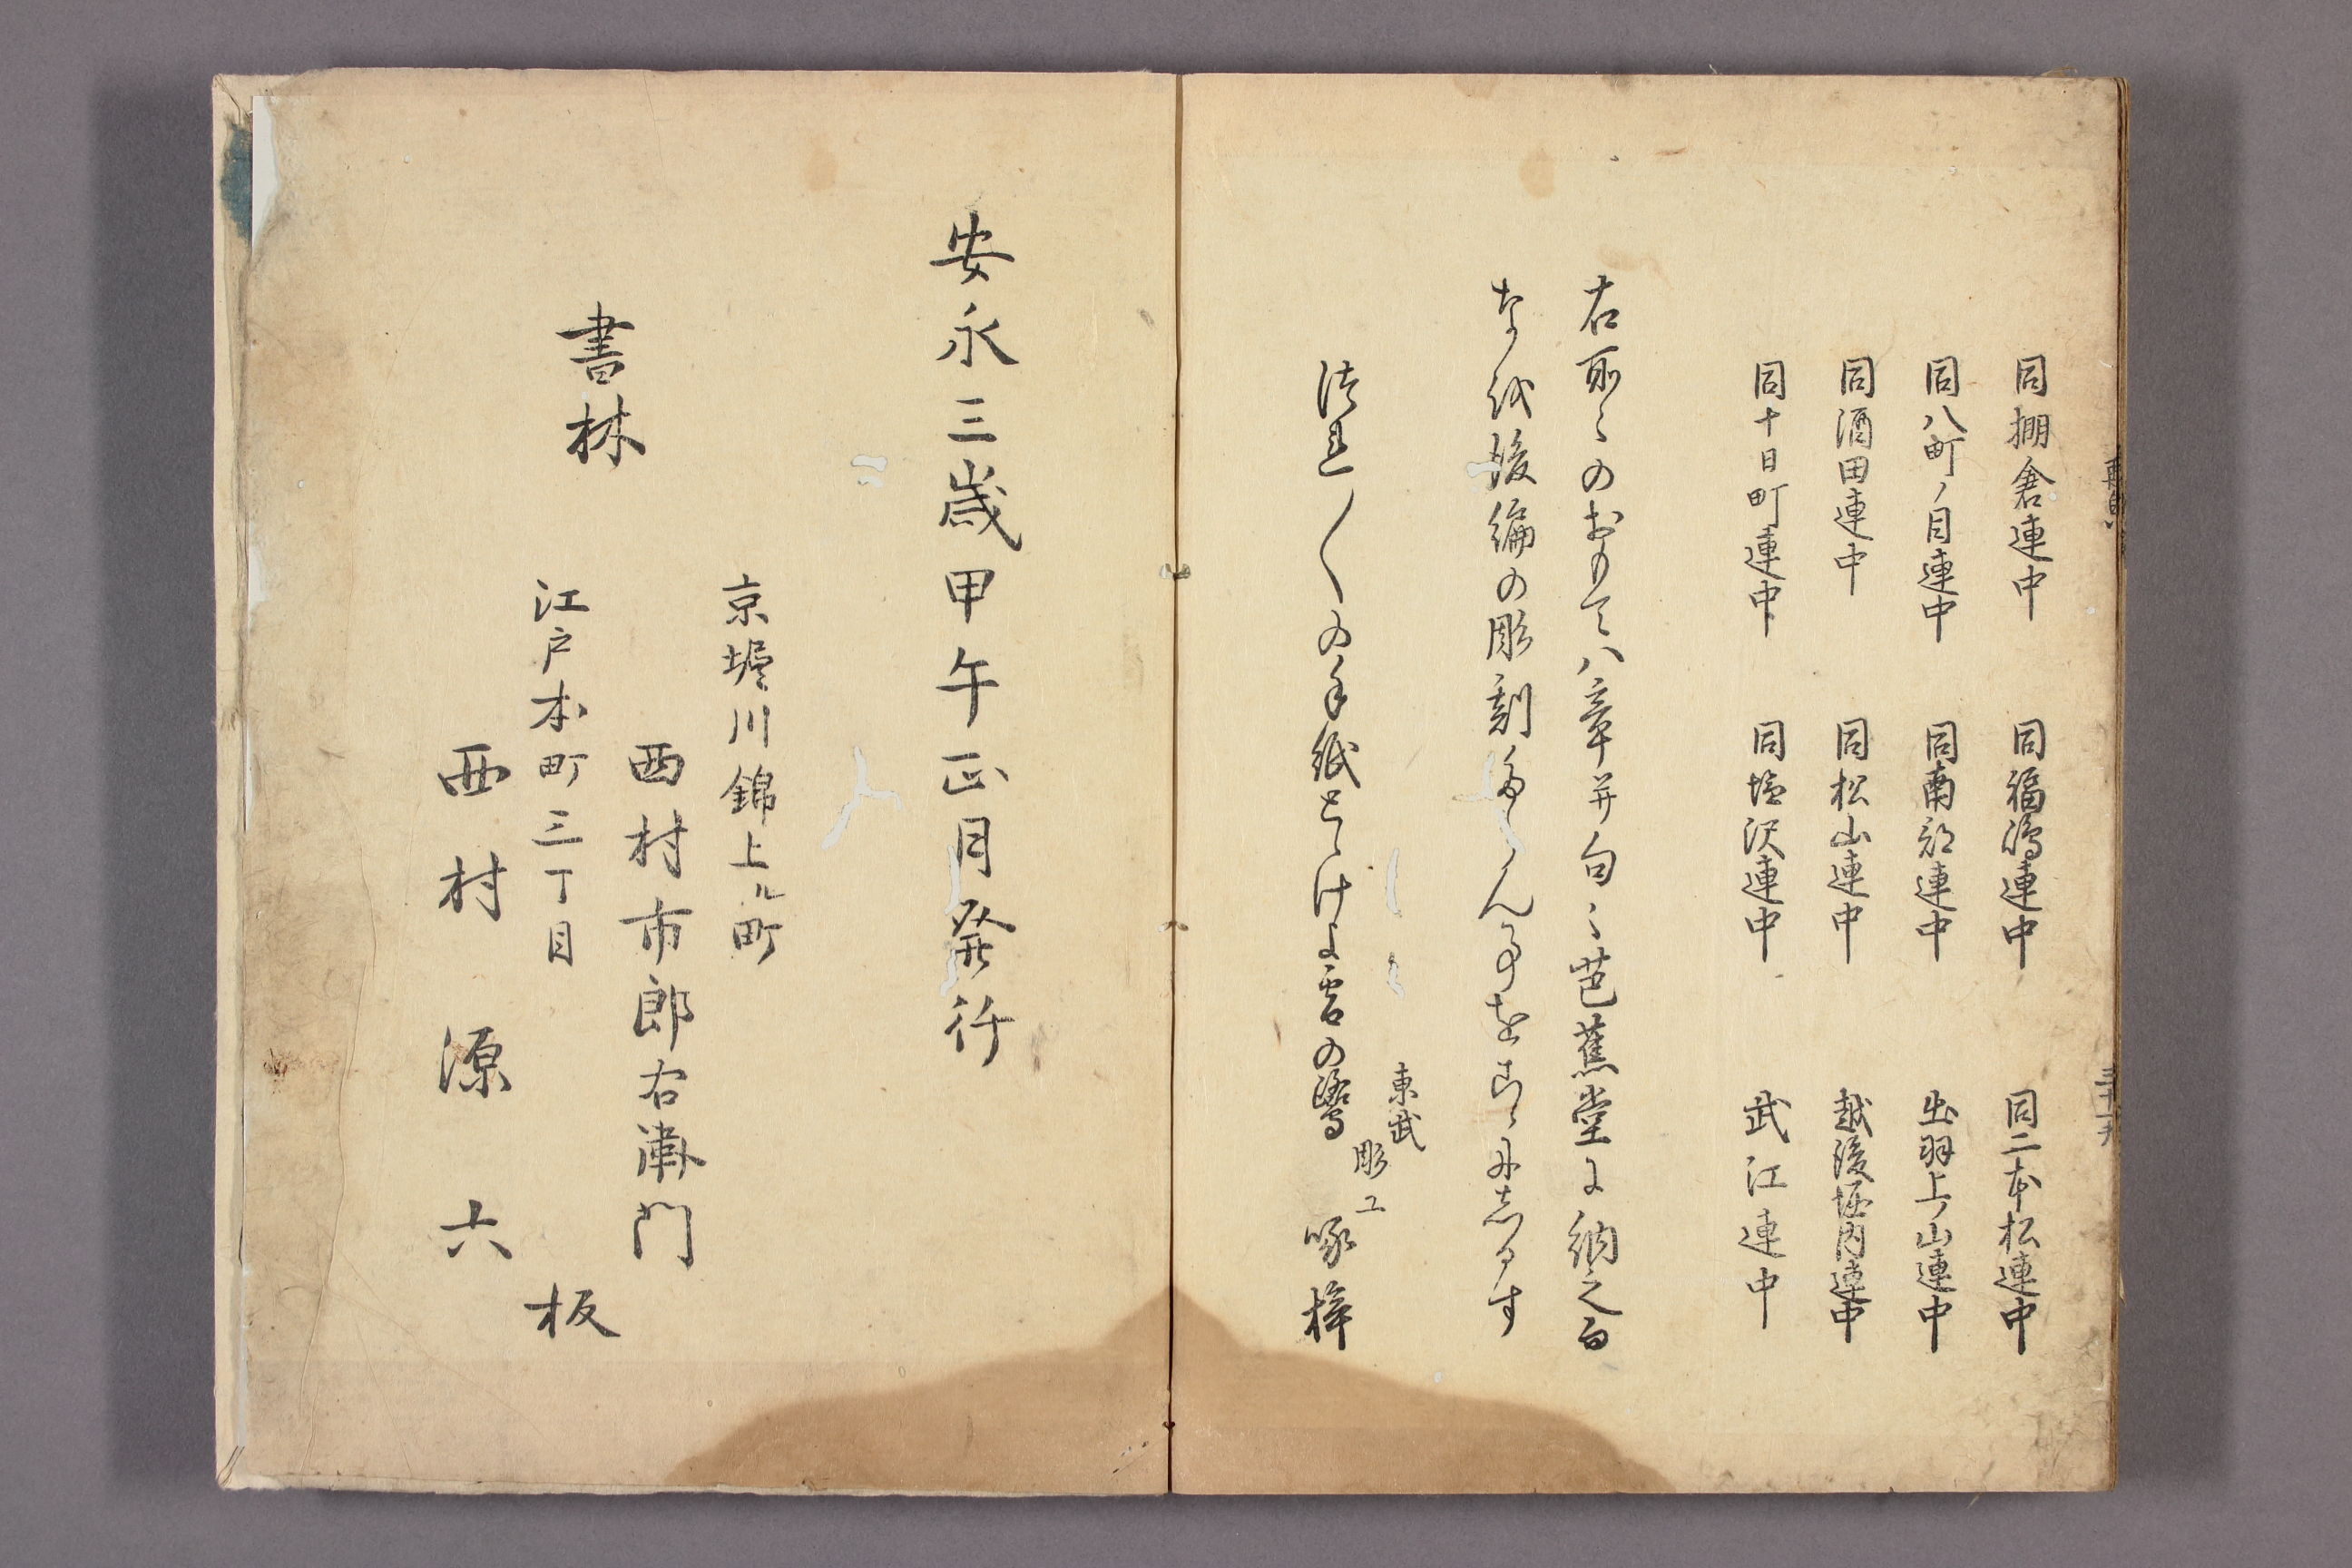 同棚倉連中
同福嶋連中
同二本松連中
同八町ノ目連中
同南部連中
出羽上ノ山連中
同酒田連中
同松山連中
越後堀内連中
同十日町連中
同塩沢連中
武江連中
右所〻のおもて八章并句〻芭蕉堂に納之由
なを後編の彫刻
事をこゝにしるす
東武
彫工
の手紙とゞけよ雪の鷺
啄梓
安永三歳甲午正月発行
京堀川錦上ル町
西村市郎右衛門
書林
江戸本町三丁目
西村源六
板